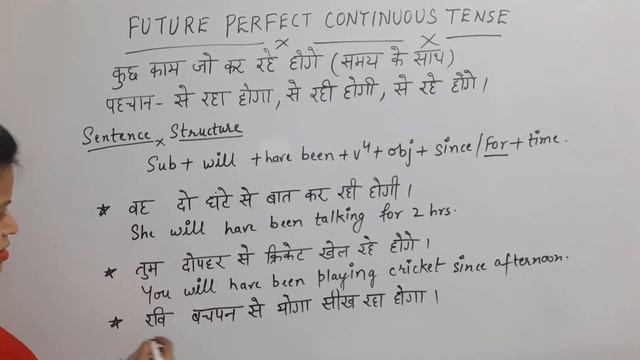 FUTURE PERFECT CONTINUOUS TENSE
कुछ काम जो कर रहे होगें (समय के साथ)
पहचान - से रहा होगा, से रही होगी, से रहे होंगे।
Sentence Structure
Sub + will + have been + v⁴ + obj + since/For + time.
* वह दो घंटे से बात कर रही होगी।
She will have been talking for 2 hrs.
* तुम दोपहर से क्रिकेट खेल रहे होगे।
You will have been playing cricket since afternoon.
* रवि बचपन से योगा सीख रहा होगा।